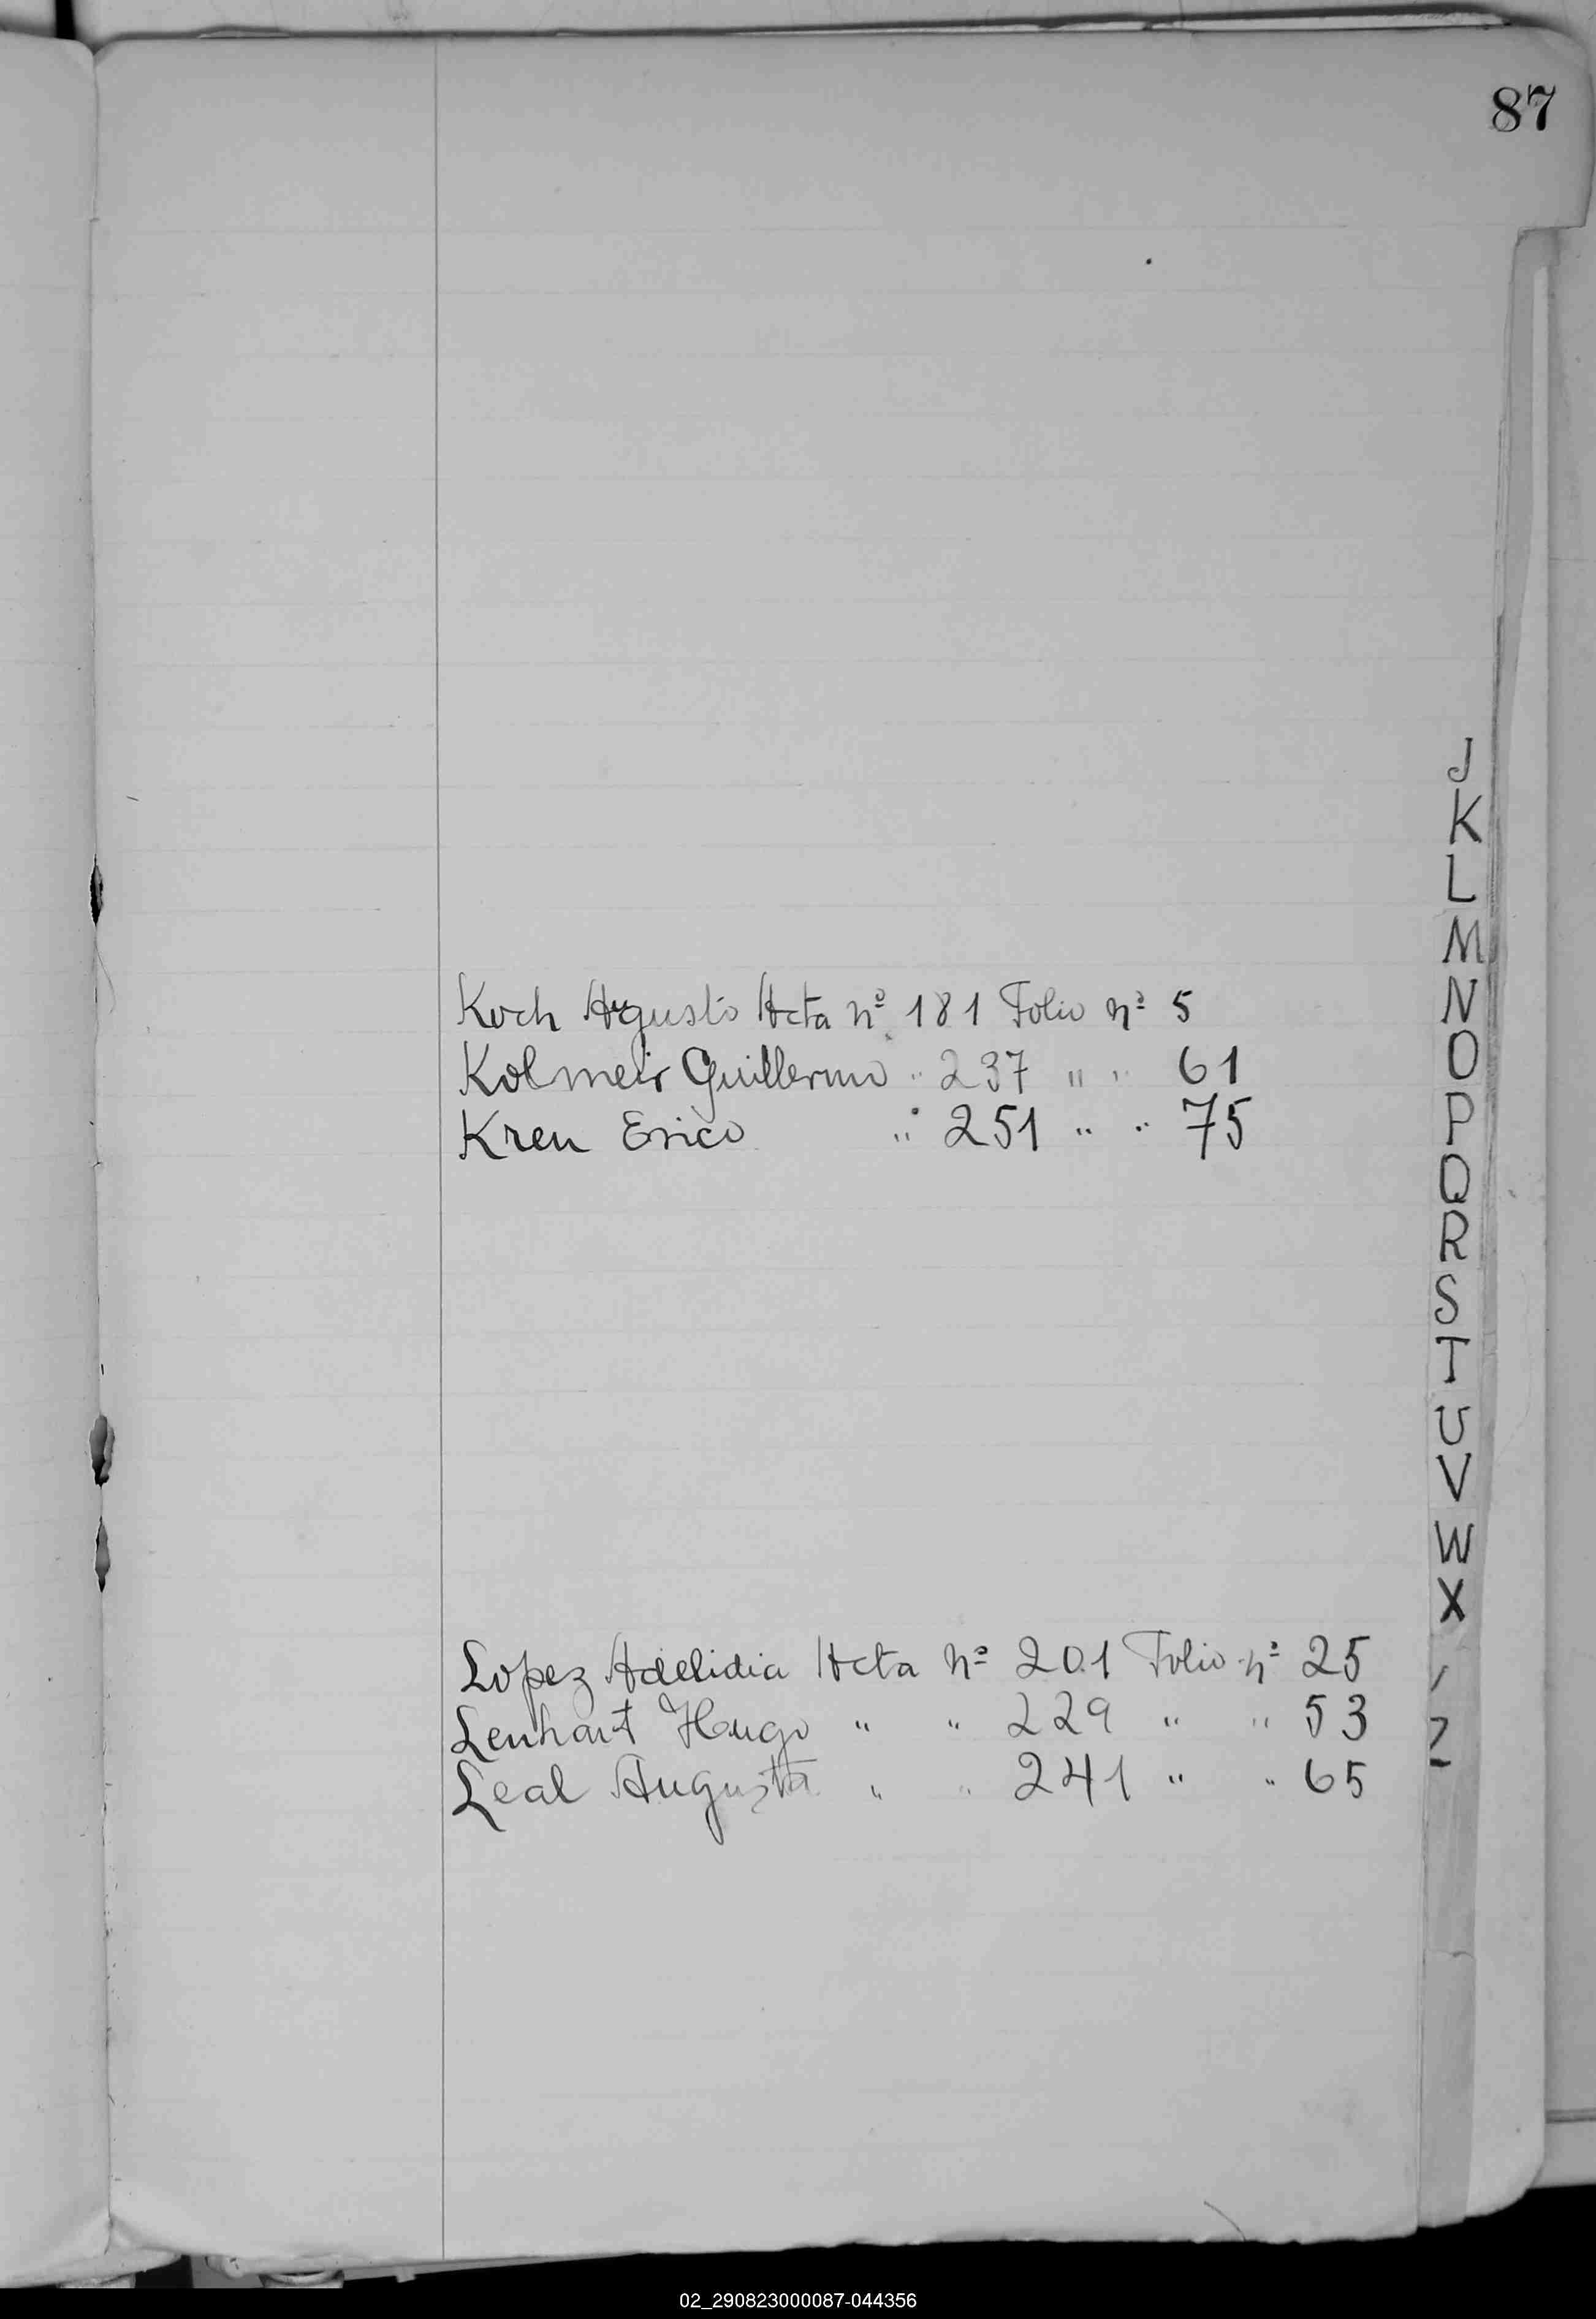 87
Koch Augusto Acta nº 181 Folio nº 5
Kolmeir Guillermo " 237 " " 61
Kren Erico " " 251 " " 75
Lopez Adelidia Acta nº 201 Folio nº 25
Lenhart Hugo " " 229 " " 53
Leal Augusta " " 241 " " 65
J
K
L
M
N
O
P
Q
R
S
T
U
V
W
X
Z
02_290823000087-044356